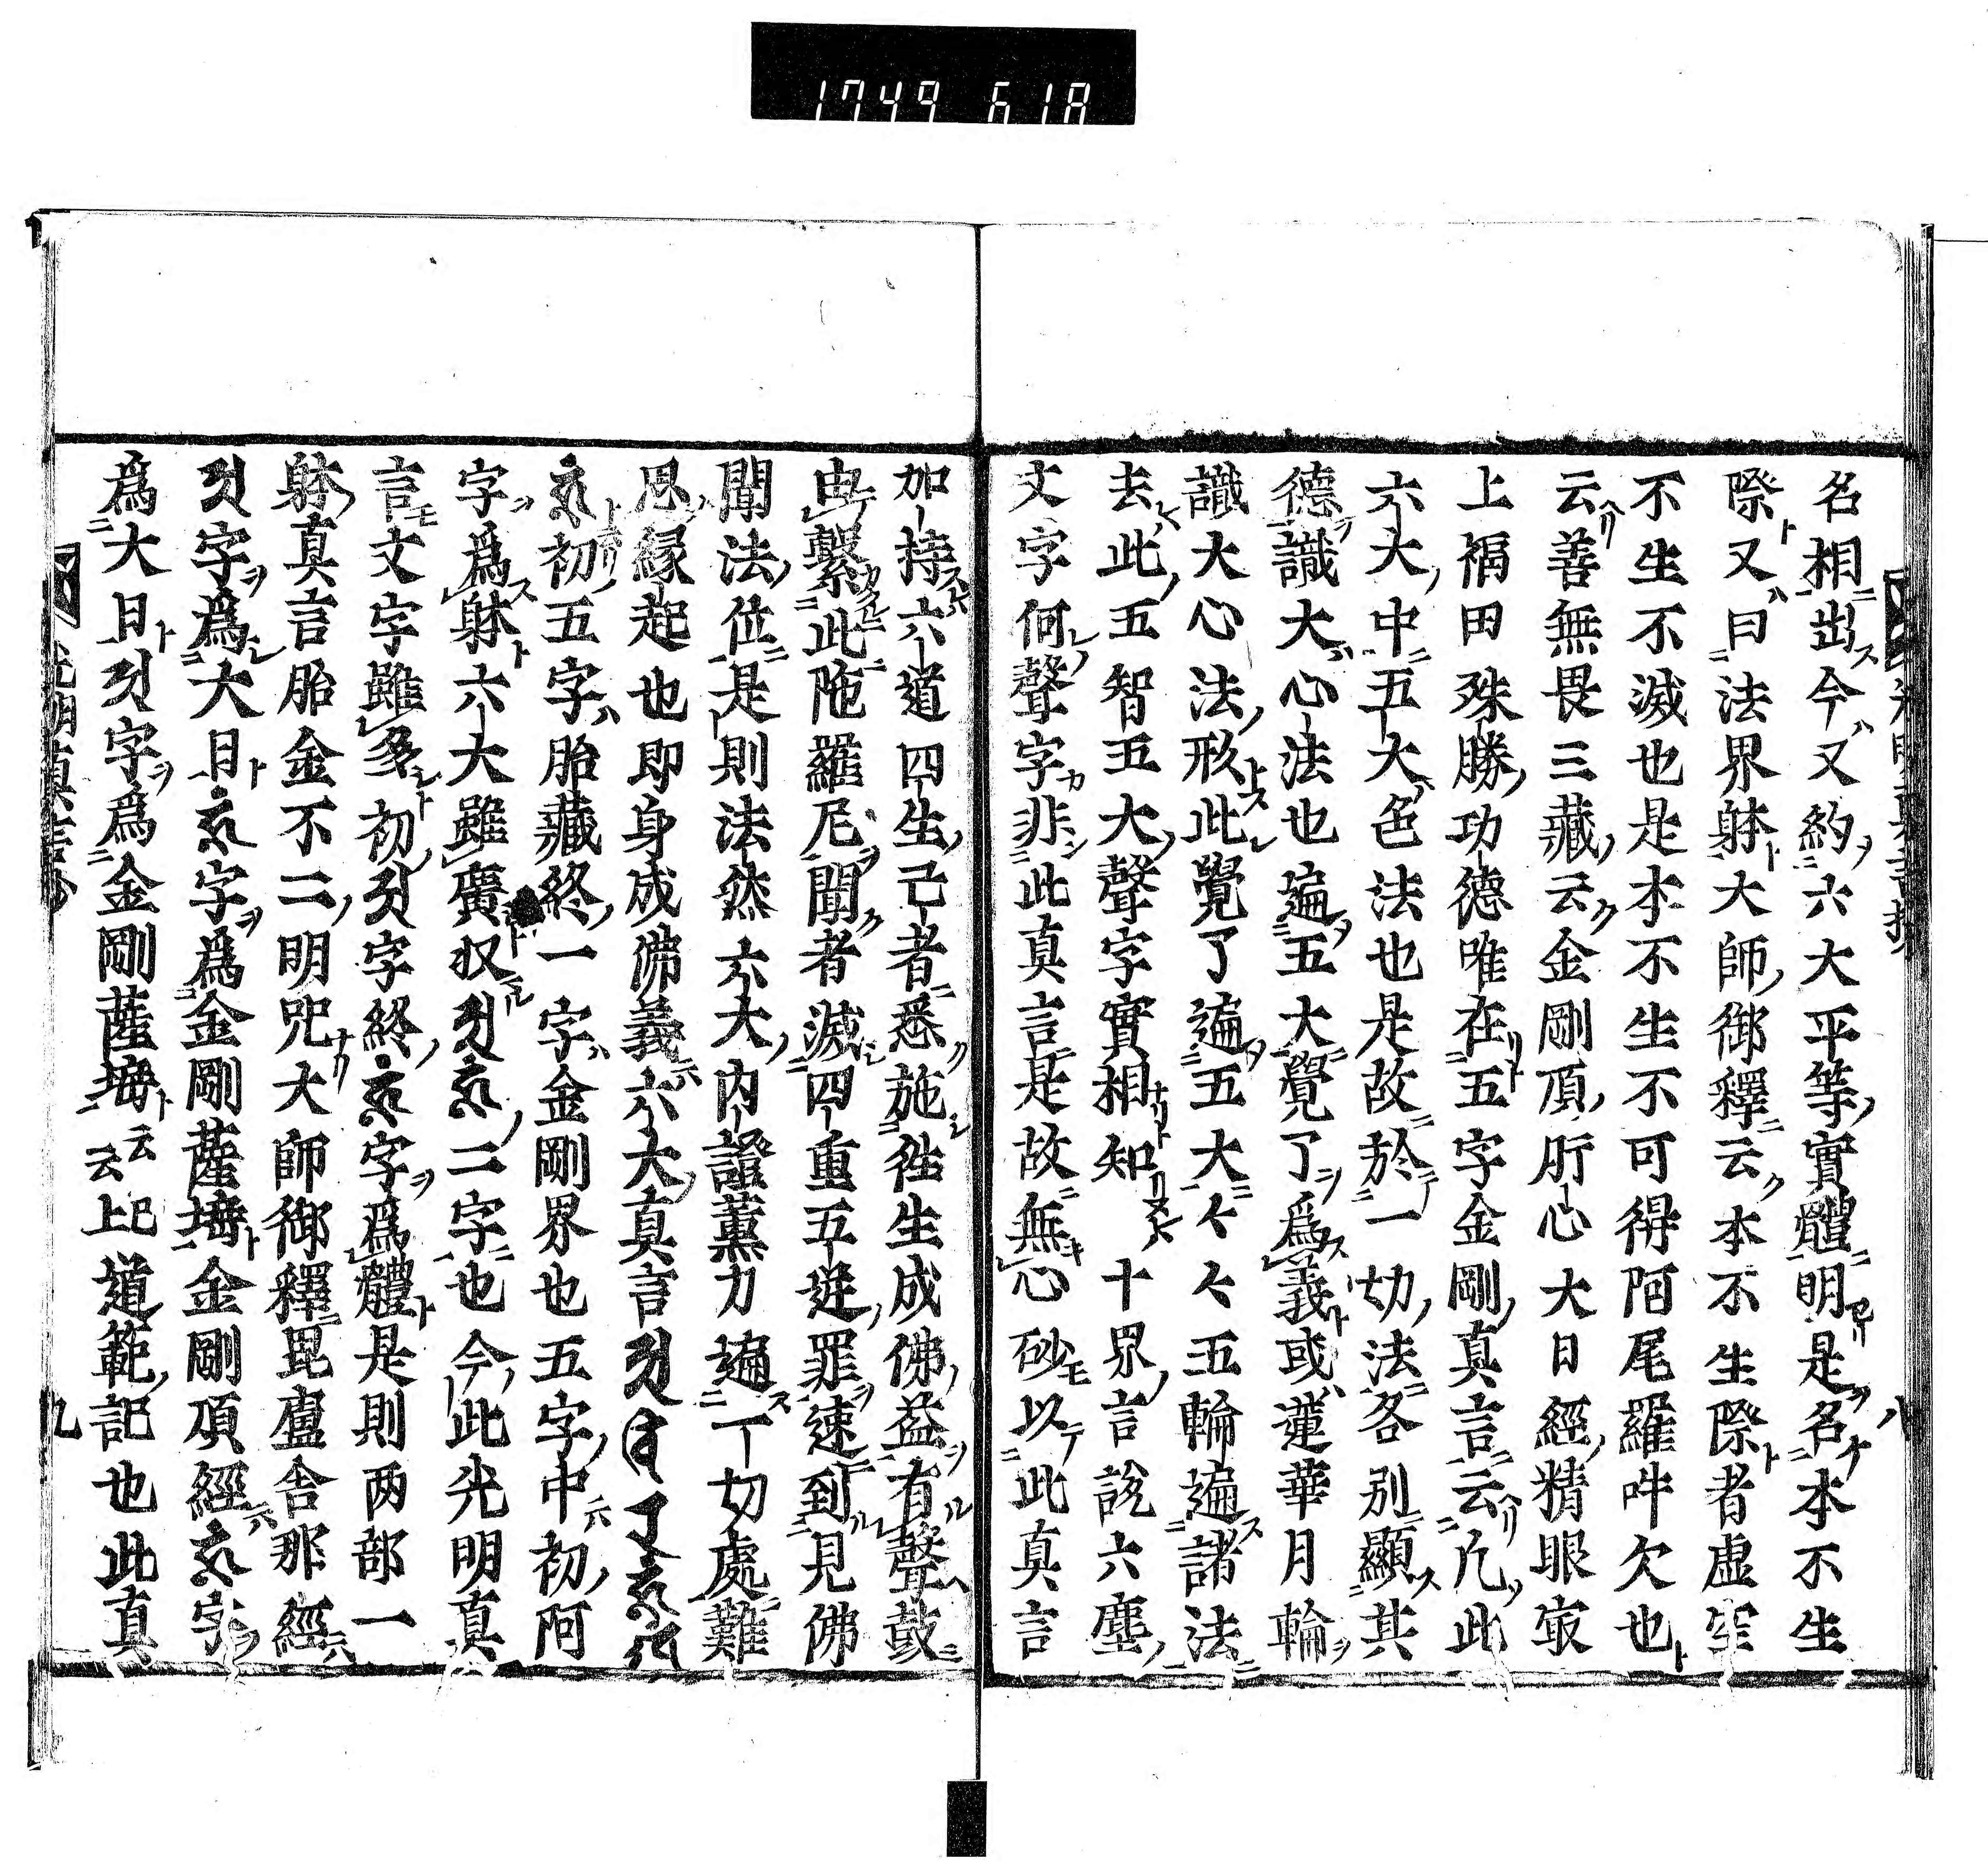 1749 618
名相出今又約六大平等實體明是名本不生
際又曰法界躰大師御釋云本不生際者虚空
不生不滅也是本不生不可得阿尾羅吽欠也
云善無畏三藏云金剛頂肝心大日經精眼㝡
上福田殊勝功德唯在五字金剛真言云凢此
六大中五大色法也是故於一切法各別顯其
德識大心法也遍五大覺了爲義或蓮華月輪
識大心法形此覺了遍五大々々五輪遍諸法
去此五智五大聲字實相知十界言說六塵
文字何聲字非此真言是故無心砂以此真言
加持六道四生己者悉施徃生成佛益有聲鼓
由繫此陁羅尼聞者滅四重五逆罪速到見佛
聞法位是則法然六大内證薫力遍一切處難
思縁起也即身成佛義六大真言
初五字胎藏終一字金剛界也五字中初阿
字爲躰六大雖廣収二字也今此光明真
言文字雖多初字終字爲體是則两部一
躰真言胎金不二明咒大師御釋毘盧舍那經
字爲大日字爲金剛薩埵金剛頂經字
爲大日字爲金剛薩埵云云上已道範記也此真
光明真言鈔
八
九